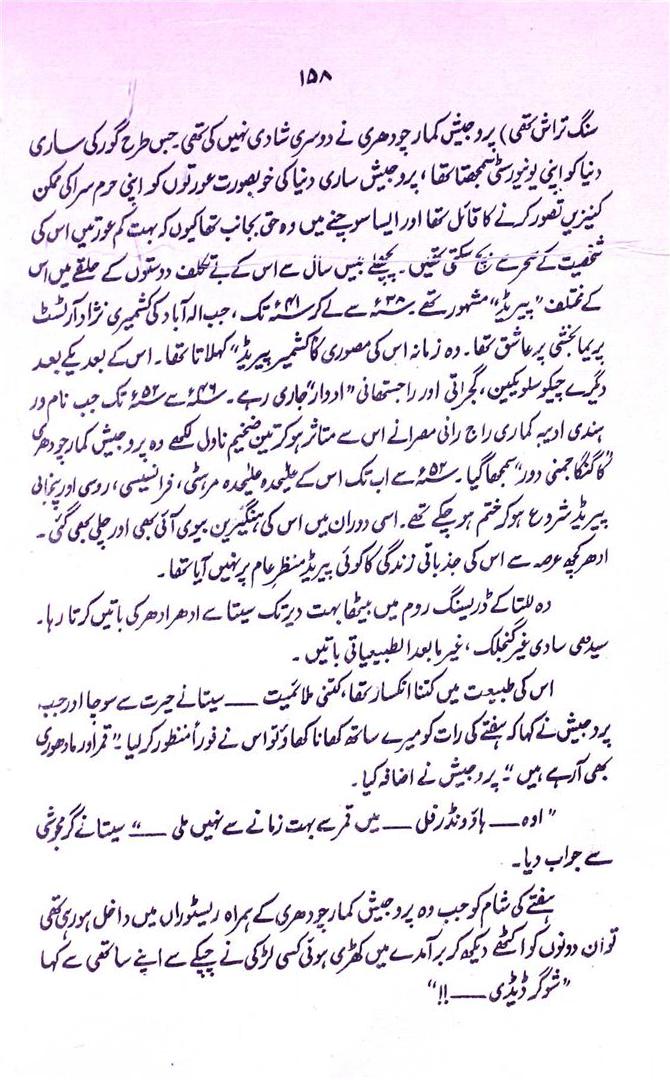 ۱۵۸
سنگ تراش تھی) پروجیش کمار چودھری نے دوسری شادی نہیں کی تھی۔ جس طرح گورکی ساری
دنیا کو اپنی یونیورسٹی سمجھتا تھا، پروجیش ساری دنیا کی خوبصورت عورتوں کو اپنی حرم سرا کی ممکن
کنیزیں تصور کرنے کا قائل تھا اور ایسا سوچنے میں وہ حق بجانب تھا کیوں کہ بہت کم عورتیں اس کی
شخصیت کے سحر سے بچ سکتی تھیں۔ پچھلے بیس سال سے اس کے بے تکلف دوستوں کے حلقے میں اس
کے مختلف "پیریڈ" مشہور تھے۔ ۳۸ء سے لے کر ۴۱ء تک، جب الہ آباد کی کشمیری نژاد آرٹسٹ
پریما بخشی پر عاشق تھا۔ وہ زمانہ اس کی مصوری کا "کشمیر پیریڈ" کہلاتا تھا۔ اس کے بعد یکے بعد
دیگرے چیکوسلویکین، گجراتی اور راجستھانی "ادوار" جاری رہے۔ ۴۶ء سے ۵۲ء تک جب نام ور
ہندی ادیبہ کماری راج رانی مصرا نے اس سے متاثر ہو کر تین ضخیم ناول لکھے وہ پروجیش کمار چودھری
کا "گنگا جمنی دور" سمجھا گیا۔ ۵۲ء سے اب تک اس کے علیحدہ علیحدہ مرہٹی، فرانسیسی، روسی اور پنجابی
پیریڈ شروع ہو کر ختم ہو چکے تھے۔ اسی دوران میں اس کی ہنگیرین بیوی آئی بھی اور چلی بھی گئی۔
ادھر کچھ عرصہ سے اس کی جذباتی زندگی کا کوئی پیریڈ منظر عام پر نہیں آیا تھا۔
وہ للتا کے ڈریسنگ روم میں بیٹھا بہت دیر تک سیتا سے ادھر ادھر کی باتیں کرتا رہا۔
سیدھی سادی غیر گنجلک، غیر مابعد الطبیعیاتی باتیں۔
اس کی طبیعت میں کتنا انکسار تھا، کتنی ملائمیت — سیتا نے حیرت سے سوچا اور جب
پروجیش نے کہا کہ ہفتے کی رات کو میرے ساتھ کھانا کھاؤ تو اس نے فوراً منظور کر لیا۔ "قمر اور مادھوری
بھی آ رہے ہیں"۔ پروجیش نے اضافہ کیا۔
"اوہ — ہاؤ ونڈرفل — میں قمر سے بہت زمانے سے نہیں ملی —" سیتا نے گرمجوشی
سے جواب دیا۔
ہفتے کی شام کو جب وہ پروجیش کمار چودھری کے ہمراہ ریسٹوراں میں داخل ہو رہی تھی
تو ان دونوں کو اکٹھے دیکھ کر برآمدے میں کھڑی ہوئی کسی لڑکی نے چپکے سے اپنے ساتھی سے کہا
"شوگر ڈیڈی — !!"